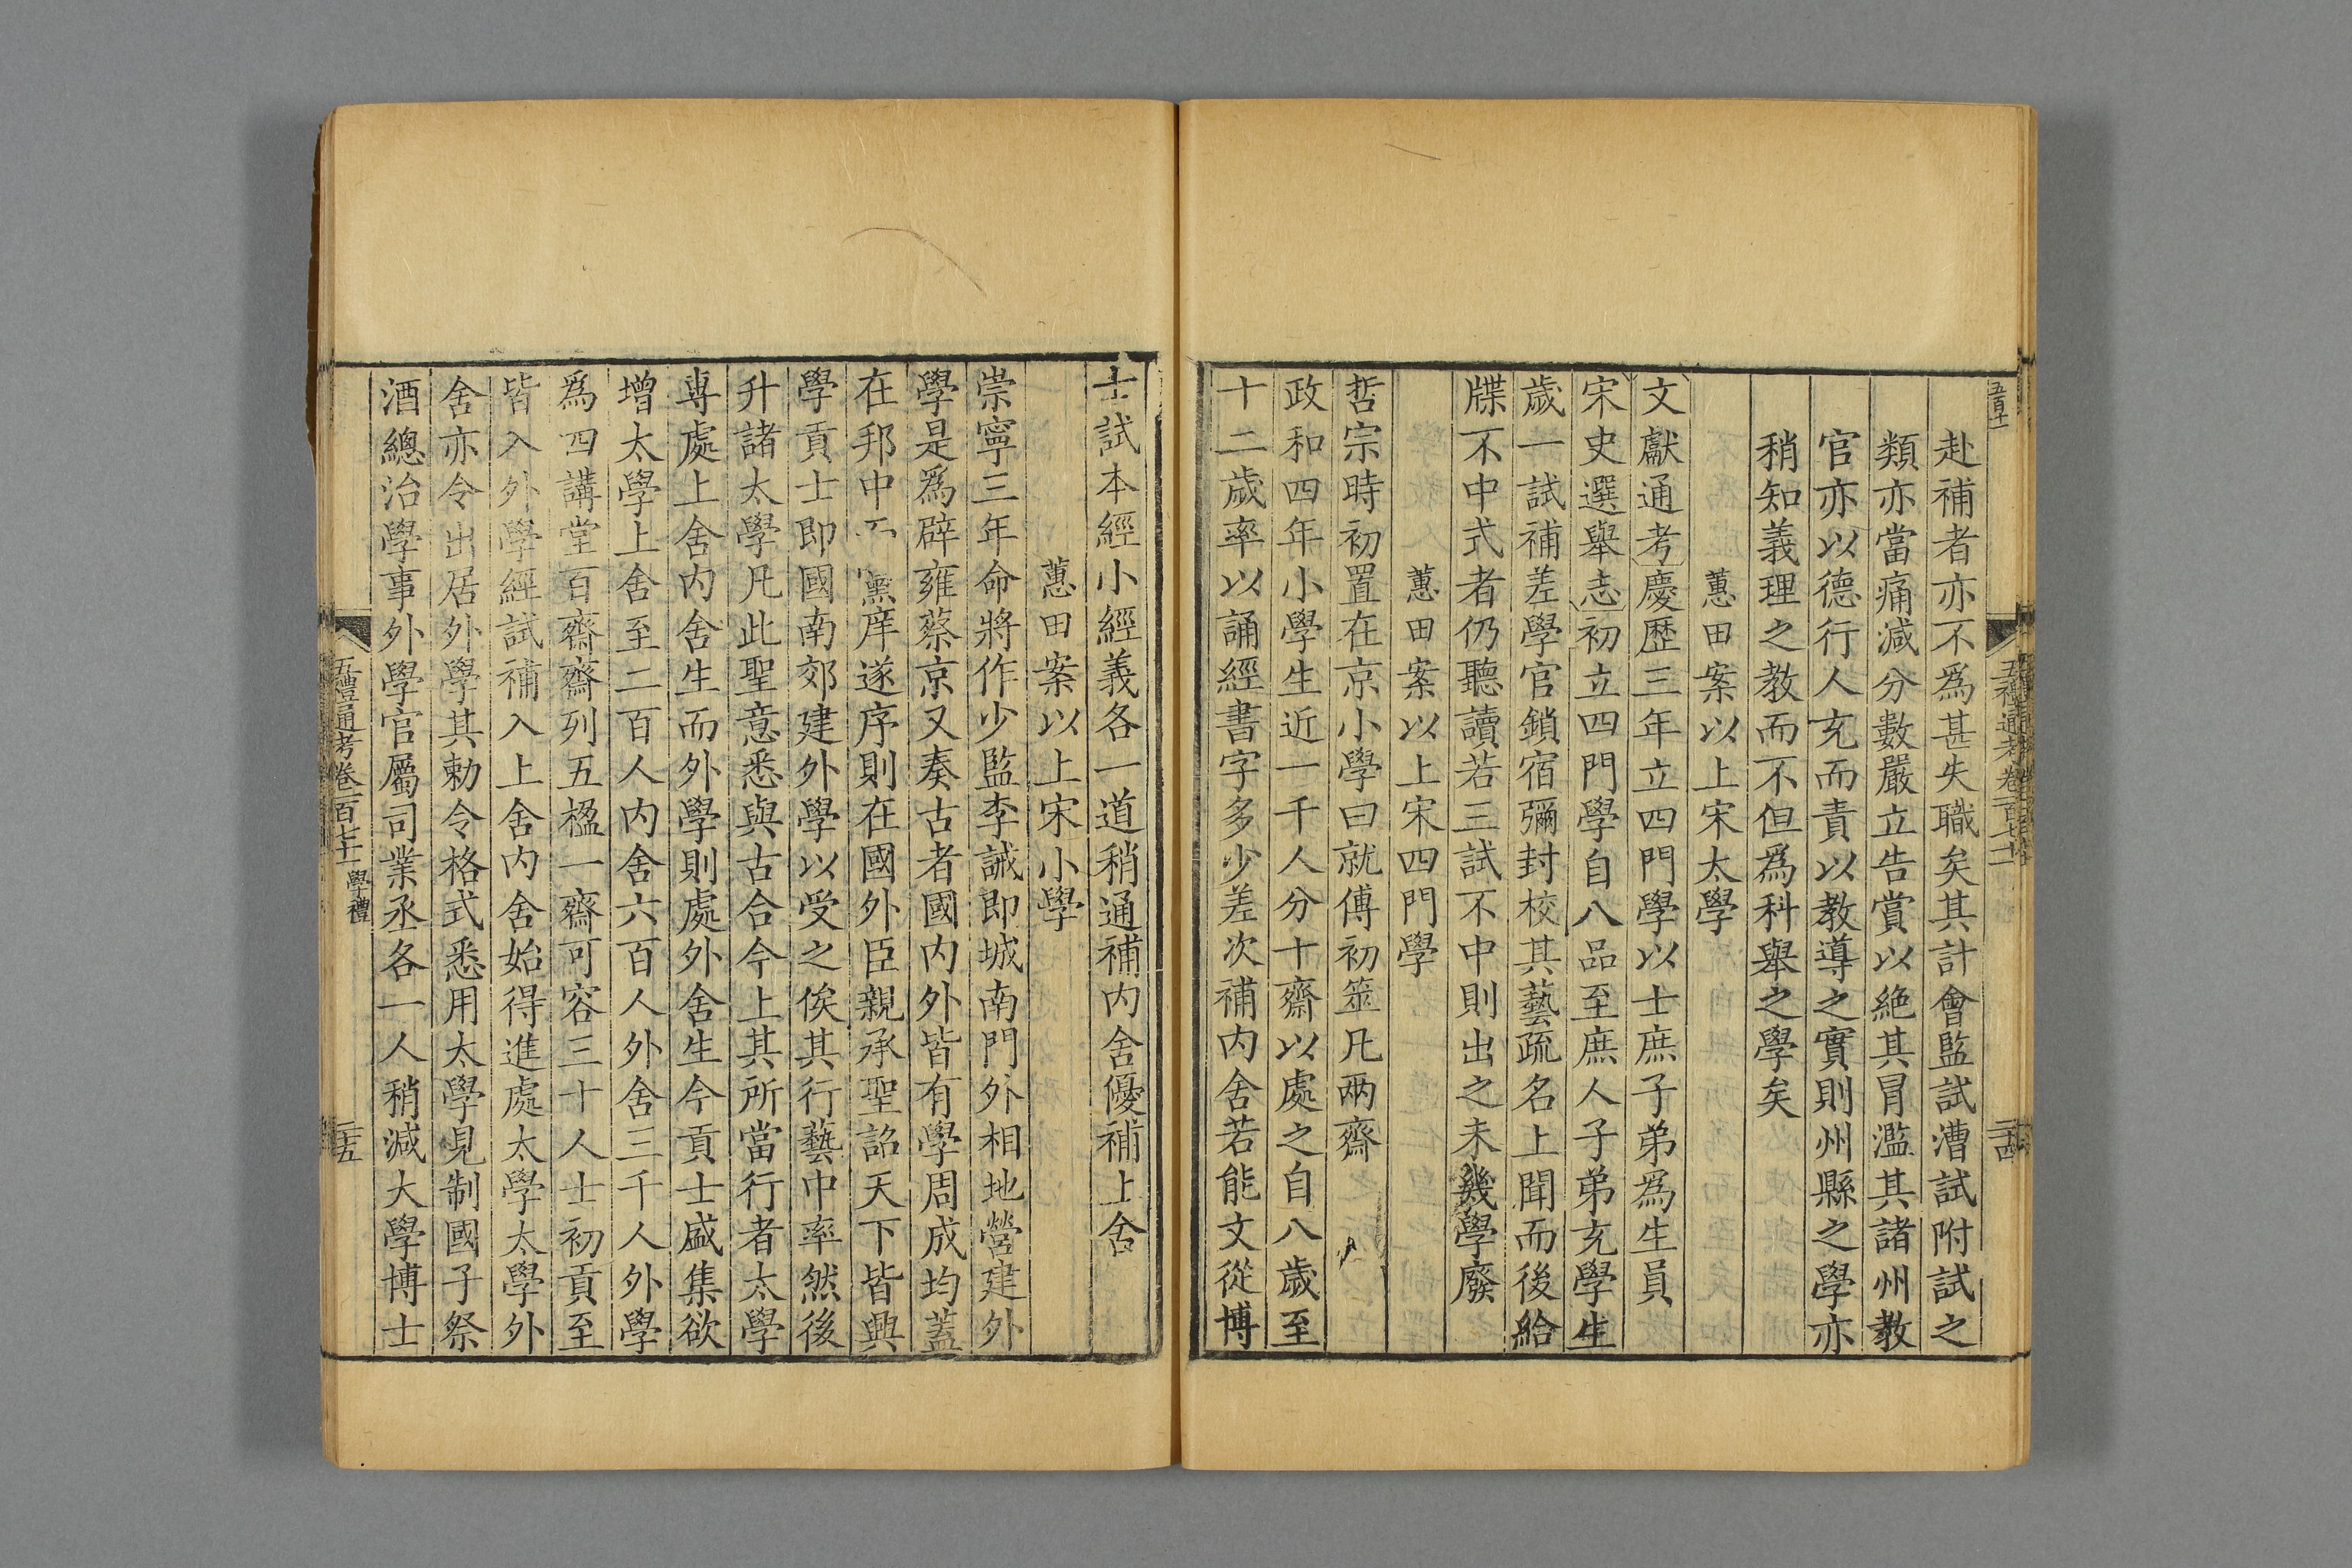 五百十一
五禮通考卷一百七十一
二十四
赴補者亦不爲甚失職矣其計會監試漕試附試之
類亦當痛減分數嚴立告賞以絶其冒濫其諸州教
官亦以德行人充而責以教導之實則州縣之學亦
稍知義理之教而不但爲科舉之學矣
蕙田案以上宋太學
文獻通考慶歴三年立四門學以士庶子弟爲生員
宋史選舉志初立四門學自八品至庶人子弟充學生
歲一試補差學官鎖宿彌封校其藝疏名上聞而後給
牒不中式者仍聽讀若三試不中則出之未幾學廢
蕙田案以上宋四門學
哲宗時初置在京小學曰就傅初筮凡兩齋
政和四年小學生近一千人分十齋以處之自八歲至
十二歲率以誦經書字多少差次補内舍若能文從博
士試本經小經義各一道稍通補内舍優補上舍
蕙田案以上宋小學
崇寧三年命將作少監李誡即城南門外相地營建外
學是爲辟雍蔡京又奏古者國内外皆有學周成均蓋
在邦中而黨庠遂序則在國外臣親承聖詔天下皆興
學貢士即國南郊建外學以受之俟其行藝中率然後
升諸太學凡此聖意悉與古合今上其所當行者太學
專處上舍内舍生而外學則處外舍生今貢士盛集欲
增太學上舍至二百人内舍六百人外舍三千人外學
爲四講堂百齋齋列五楹一齋可容三十人士初貢至
皆入外學經試補入上舍内舍始得進處太學太學外
舍亦令出居外學其勅令格式悉用太學見制國子祭
酒總治學事外學官屬司業丞各一人稍減大學博士
五禮通考卷一百七十一 學禮
二十五